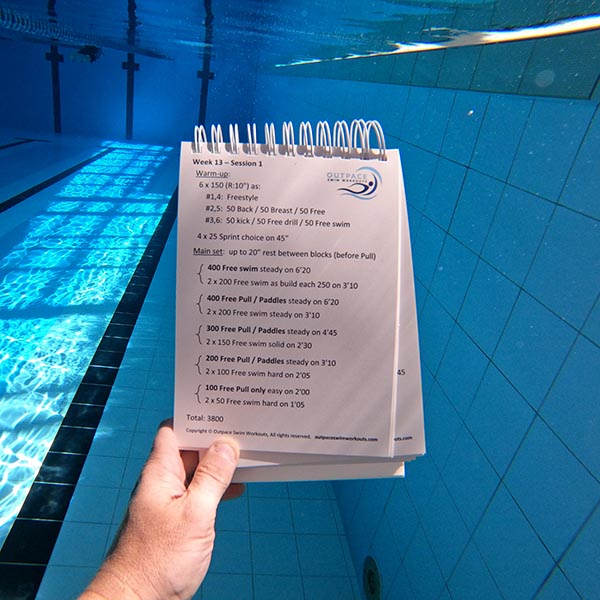 Week 13 – Session 1
OUTPACE
SWIM WORKOUTS
Warm-up:
6 x 150 (R:10") as:
#1,4: Freestyle
#2,5: 50 Back / 50 Breast / 50 Free
#3,6: 50 kick / 50 Free drill / 50 Free swim
4 x 25 Sprint choice on 45"
Main set: up to 20" rest between blocks (before Pull)
400 Free swim steady on 6'20
2 x 200 Free swim as build each 250 on 3'10
400 Free Pull / Paddles steady on 6'20
2 x 200 Free swim steady on 3'10
300 Free Pull / Paddles steady on 4'45
2 x 150 Free swim solid on 2'30
200 Free Pull / Paddles steady on 3'10
2 x 100 Free swim hard on 2'05
45
100 Free Pull only easy on 2'00
2 x 50 Free swim hard on 1'05
Total: 3800
Copyright © Outpace Swim Workouts, All rights reserved. outpaceswimworkouts.com